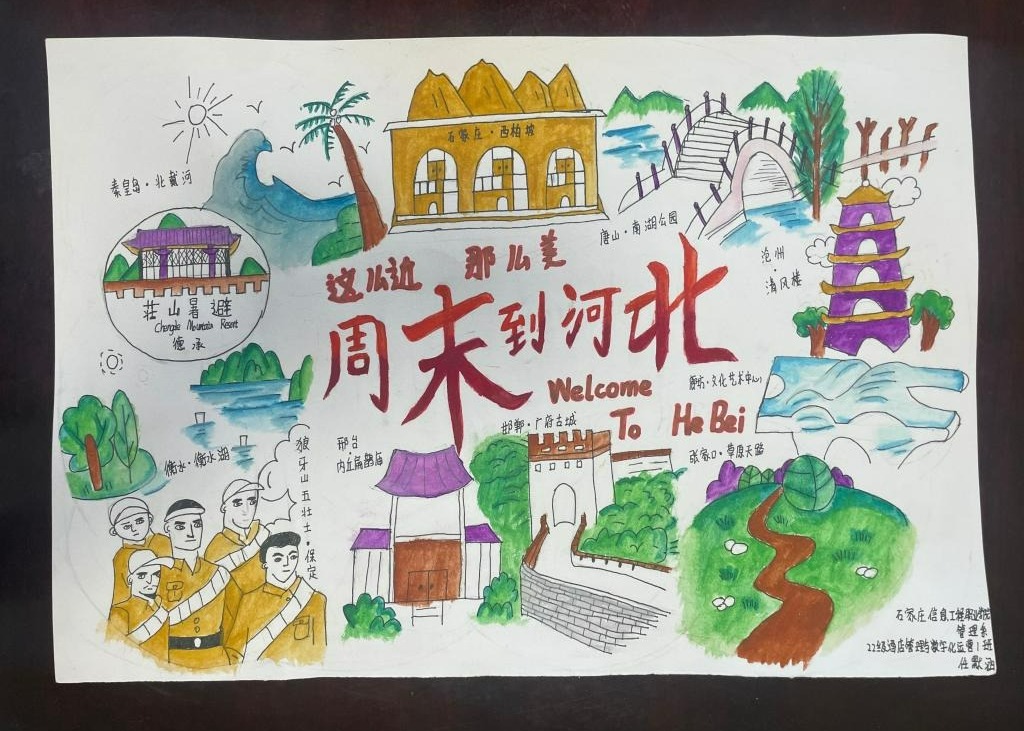 石家庄·西柏坡
秦皇岛·北戴河
唐山·南湖公园
沧州·
清风楼
这么近 那么美
周末到河北
Welcome
To HeBei
荘山暑避
Chengde Mountain Resort
德承
廊坊·文化艺术中心
邯郸·广府古城
张家口·草原天路
邢台
内丘扁鹊庙
衡水·衡水湖
狼牙山五壮士·保定
石家庄信息工程职业学院
管理系
22级酒店管理与数字化运营1班
任歌涵